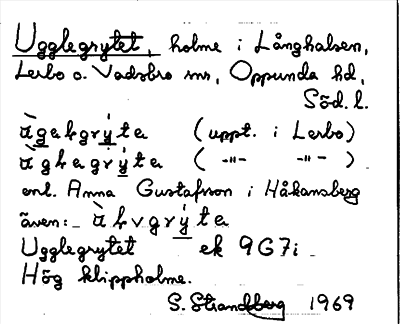 Ugglegrytet, holme i Långhalsen,
Lerbo o. Vadsbro snr, Oppunda hd,
Söd. l.
ùgǝlgrýta (uppt. i Lerbo)
ùglǝgrýta ( -"- -"- )
enl. Anna Gustafsson i Håkansberg
även:
Ugglegrytet ek 9G7i
Hög klippholme.
S. Strandberg 1969